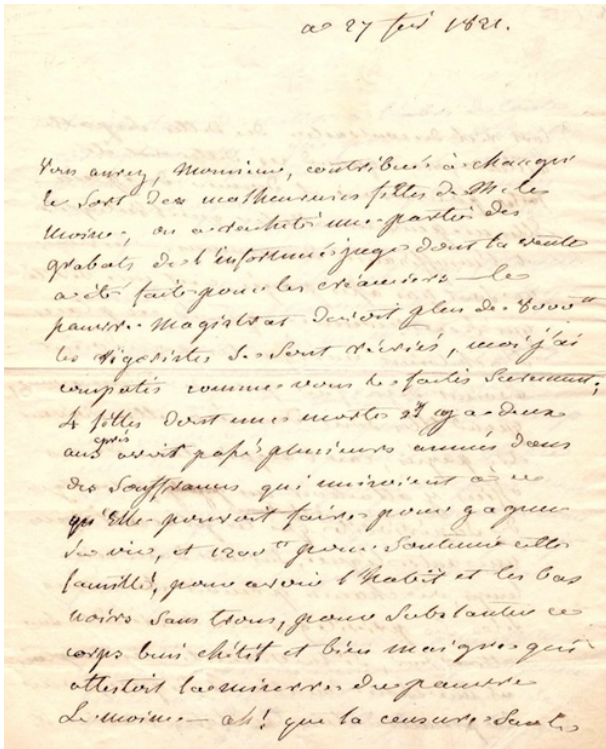 ce 27 fev 1821.
vous aurez, Monsieur, contribué à changer
le sort des malheureuses filles de M. le
Moine, on a racheté une partie des
grabats de l'infortuné juge dont la vente
a été faite pour les créanciers — le
pauvre Magistrat devoit plus de 8000tt
les rigoristes se sont récriés, moi j'ai
compatis comme vous le faites surement;
4 filles dont une morte il y a deux
ans après avoir passé plusieurs années dans
des souffrances qui nuisoient à ce
qu'Elle pouvoit faire pour gagner
sa vie, et 1200tt pour soutenir cette
famille, pour avoir l'habit et les bas
noirs sans trous, pour substanter ce
corps bien chétif et bien maigre qui
attestoit la misere du pauvre
Le moine — ah! que la censure